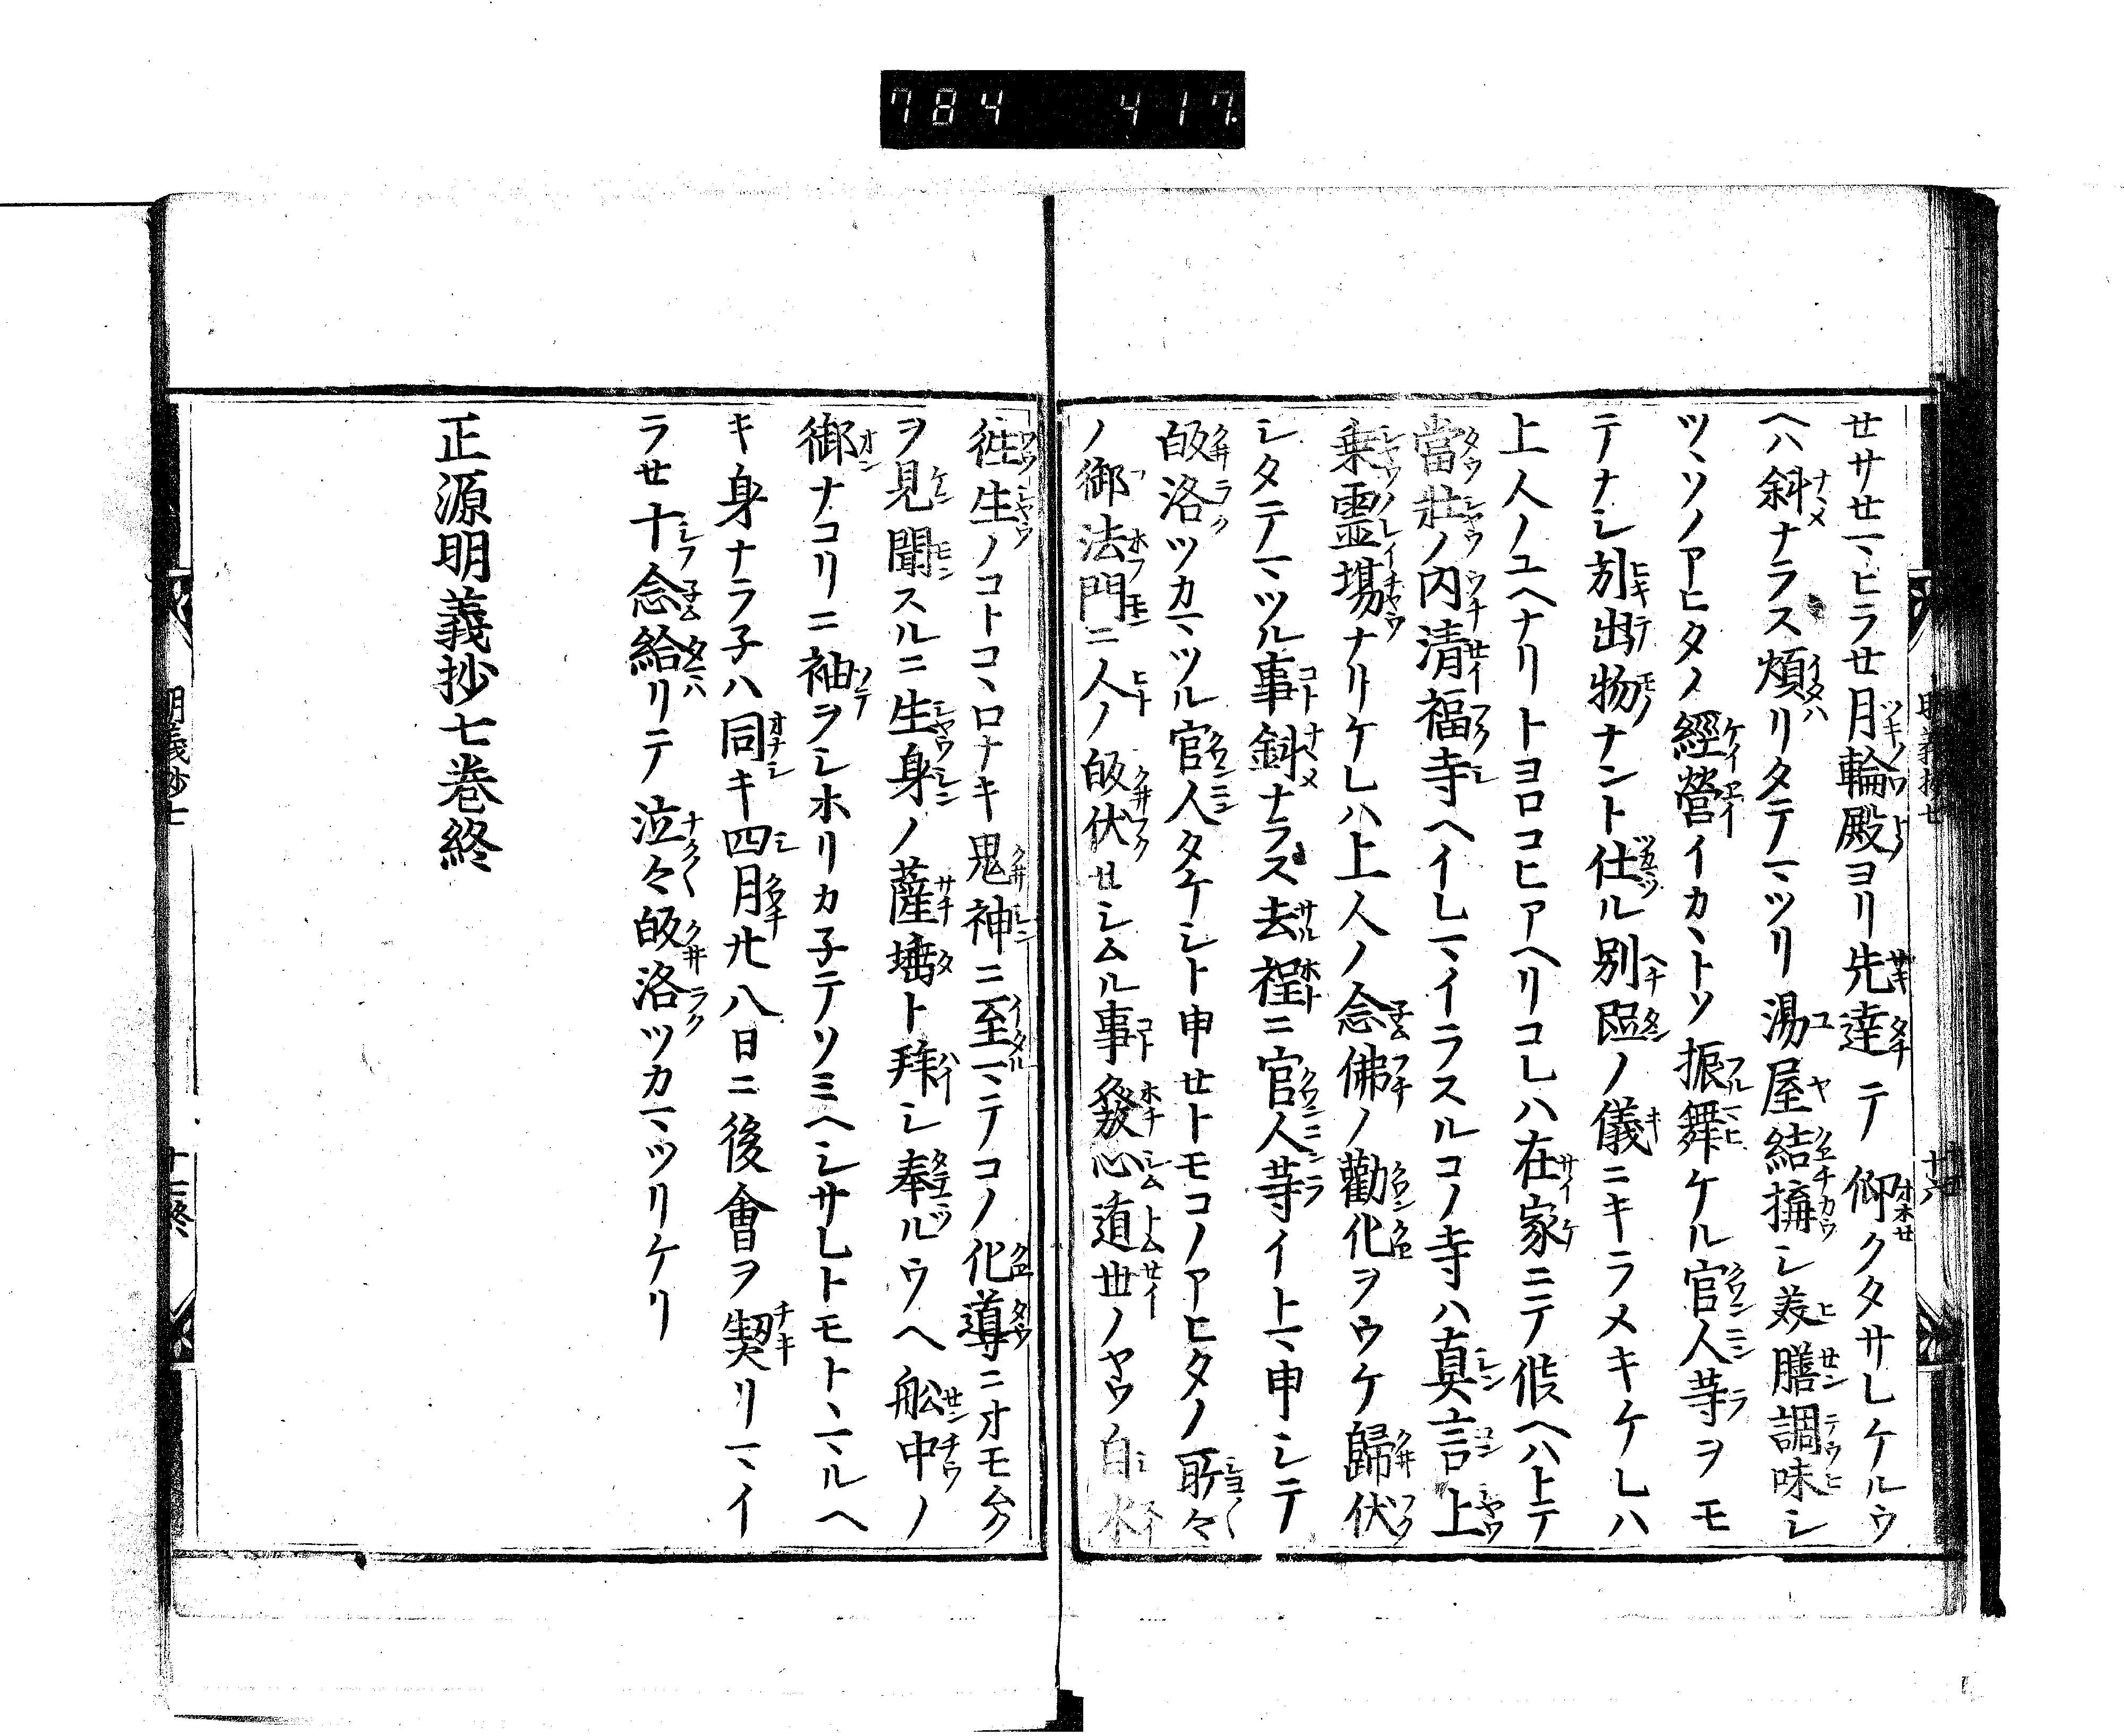 784 417.
セサセマヽヒラセ月輪殿ヨリ先達テ仰クタサレケルウ
ヘハ斜ナラス煩リタテマツリ湯屋結搆シ美膳調味シ
ツヽソノアヒタノ經營イカヽトソ振舞ケル官人䓁ヲモ
テナシ別出物ナント仕ル別臨ノ儀ニキラメキケレハ
上人ノユヘナリトヨロコヒアヘリコレハ在家ニテ候ヘハトテ
當庄ノ内清福寺ヘイレマイラスルコノ寺ハ真言上
乗霊場ナリケレハ上人ノ念佛ノ勸化ヲウケ歸伏
シタテマヽツル事斜ナラス去程ニ官人䓁イトマ申シテ
皈洛ツカマヽツル官人タケシト申セトモコノアヒタノ所々
ノ御法門ニ人ノ皈伏セシムル事發心道世ノヤウ白水
徃生ノコトコヽロナキ鬼神ニ至マヽテコノ化導ニオモムク
ヲ見聞スルニ生身ノ薩埵ト拜シ奉ルウヘ舩中ノ
御ナコリニ袖ヲシホリカ子テソミヘシサレトモトヽマルヘ
キ身ナラ子ハ同キ四月廿八日ニ後會ヲ契リマヽイ
ラセ十念給リテ泣々皈洛ツカマツリケリ
正源明義抄七巻終